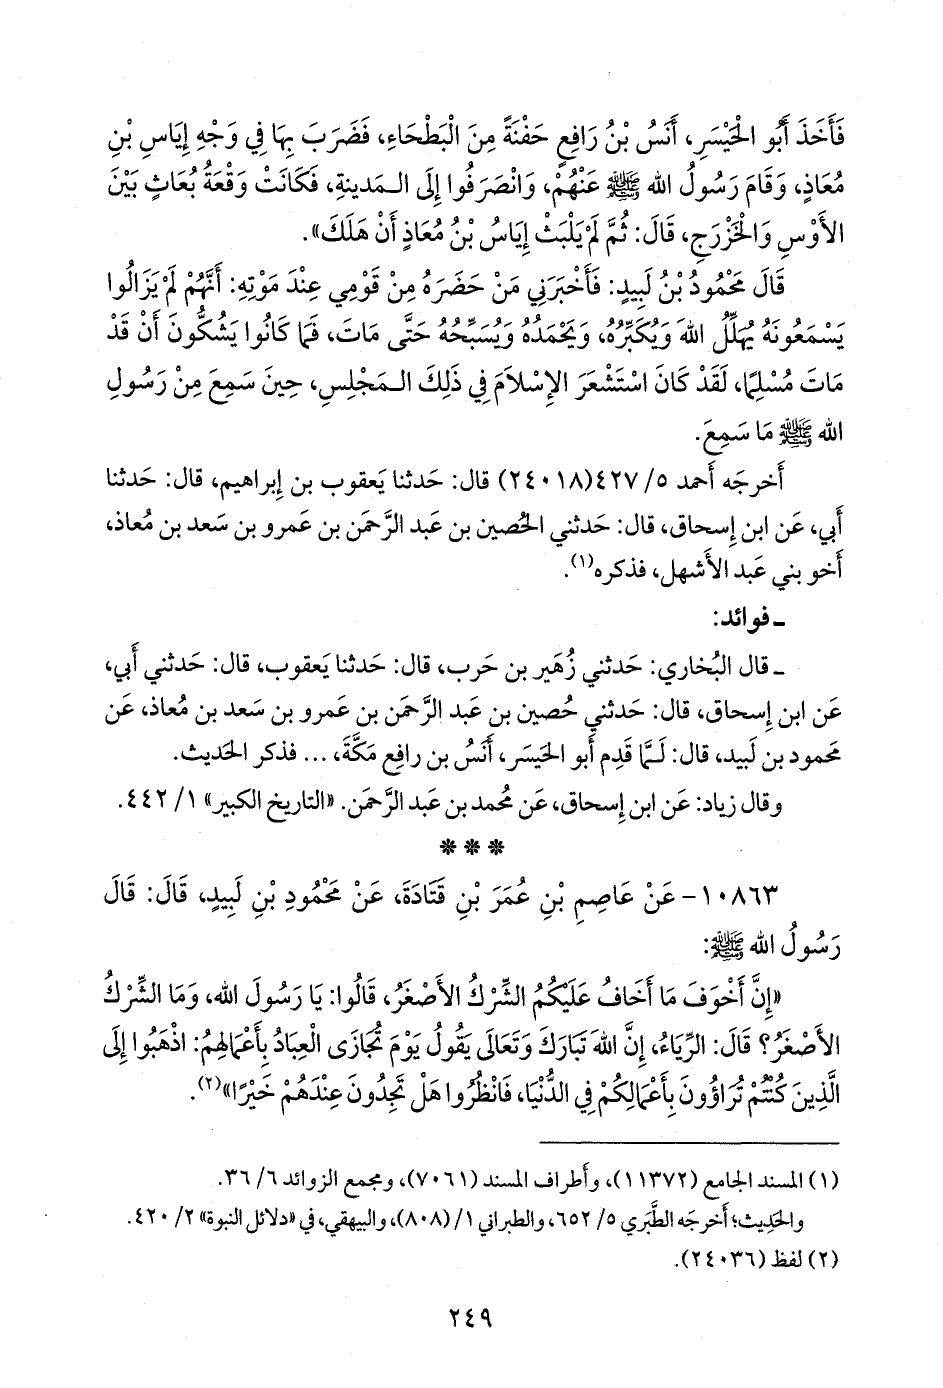 فَأَخَذَ أَبُو الْحَيْسَرِ، أَنَسُ بْنُ رَافِعٍ حَفْنَةً مِنَ الْبَطْحَاءِ، فَضَرَبَ بِهَا فِي وَجْهِ إِيَاسِ بْنِ
مُعَاذٍ، وَقَامَ رَسُولُ الله ﷺ عَنْهُمْ، وَانْصَرَفُوا إِلَى الـمَدينةِ، فَكَانَتْ وَقْعَةُ بُعَاثٍ بَيْنَ
الأَوْسِ وَالْخَزْرَجِ، قَالَ: ثُمَّ لَمْ يَلْبَثْ إِيَاسُ بْنُ مُعَاذٍ أَنْ هَلَكَ».
قَالَ مَحْمُودُ بْنُ لَبِيدٍ: فَأَخْبَرَنِي مَنْ حَضَرَهُ مِنْ قَوْمِي عِنْدَ مَوْتِهِ: أَنَّهُمْ لَمْ يَزَالُوا
يَسْمَعُونَهُ يُهَلِّلُ اللهَ وَيُكَبِّرُهُ، وَيَحْمَدُهُ وَيُسَبِّحُهُ حَتَّى مَاتَ، فَمَا كَانُوا يَشُكُّونَ أَنْ قَدْ
مَاتَ مُسْلِمًا، لَقَدْ كَانَ اسْتَشْعَرَ الإِسْلاَمَ فِي ذَلِكَ الـمَجْلِسِ، حِينَ سَمِعَ مِنْ رَسُولِ
الله ﷺ مَا سَمِعَ.
أَخرجَه أَحمد ٥/ ٤٢٧(٢٤٠١٨) قال: حَدثنا يَعقوب بن إِبراهيم، قال: حَدثنا
أَبي، عَن ابن إِسحاق، قال: حَدثني الحُصين بن عَبد الرَّحمَن بن عَمرو بن سَعد بن مُعاذ،
أَخو بني عَبد الأَشهل، فذكره(١).
ـ فوائد:
ـ قال البُخاري: حَدثني زُهَير بن حَرب، قال: حَدثنا يَعقوب، قال: حَدثني أَبي،
عَن ابن إِسحاق، قال: حَدثني حُصين بن عَبد الرَّحمَن بن عَمرو بن سَعد بن مُعاذ، عَن
محمود بن لَبيد، قال: لَـمَّا قَدِم أَبو الحَيسَر، أَنَسُ بن رافِع مَكَّةَ، ... فذكر الحَديث.
وقال زياد: عَن ابن إِسحاق، عَن مُحمد بن عَبد الرَّحمَن. «التاريخ الكبير» ١/ ٤٤٢.
* * *
١٠٨٦٣ - عَنْ عَاصِمِ بْنِ عُمَرَ بْنِ قَتَادَةَ، عَنْ مَحْمُودِ بْنِ لَبِيدٍ، قَالَ: قَالَ
رَسُولُ الله ﷺ:
«إِنَّ أَخْوَفَ مَا أَخَافُ عَلَيْكُمُ الشِّرْكُ الأَصْغَرُ، قَالُوا: يَا رَسُولَ الله، وَمَا الشِّرْكُ
الأَصْغَرُ؟ قَالَ: الرِّيَاءُ، إِنَّ اللهَ تَبَارَكَ وَتَعَالَى يَقُولُ يَوْمَ تُجَازَى الْعِبَادُ بِأَعْمَالِهِمُ: اذْهَبُوا إِلَى
الَّذِينَ كُنْتُمْ تُرَاؤُونَ بِأَعْمَالِكُمْ فِي الدُّنْيَا، فَانْظُرُوا هَلْ تَجِدُونَ عِنْدَهُمْ خَيْرًا»(٢).
(١) المسند الجامع (١١٣٧٢)، وأطراف المسند (٧٠٦١)، ومجمع الزوائد ٦/ ٣٦.
والحَدِيث؛ أخرجَه الطَّبَري ٥/ ٦٥٢، والطبراني ١/ (٨٠٨)، والبيهقي، في «دلائل النبوة» ٢/ ٤٢٠.
(٢) لفظ (٢٤٠٣٦).
٢٤٩